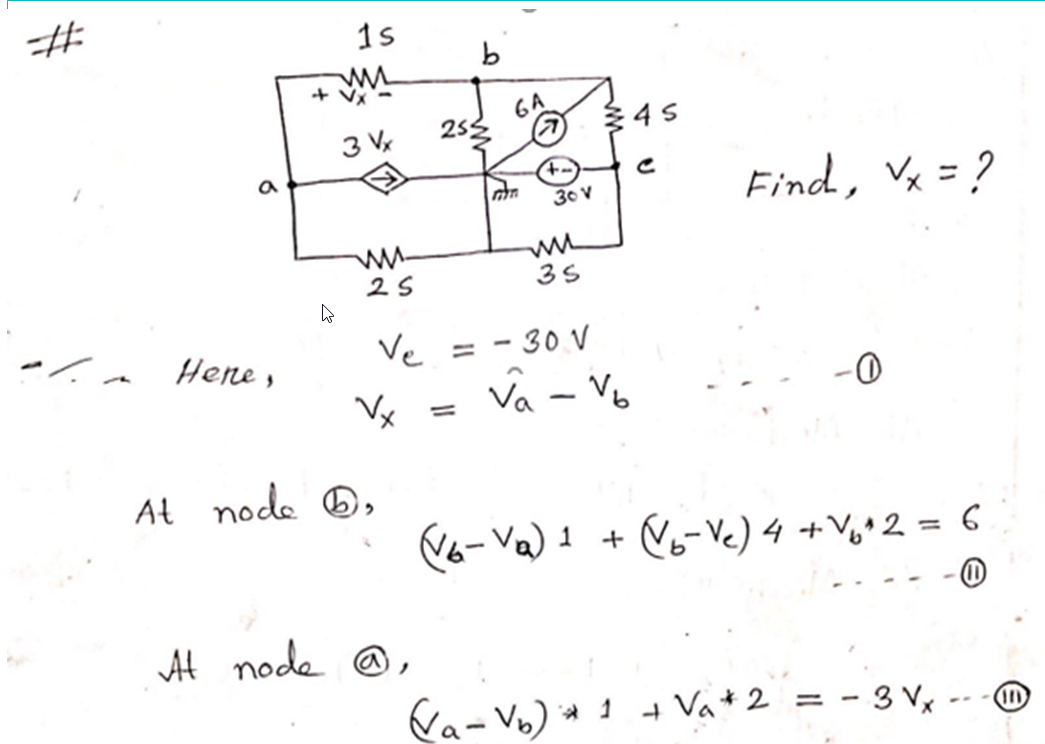 #
1S
b
+ Vx -
6A
2S
4 S
3 Vx
a
+ -
c
30 V
Find, Vx = ?
2 S
3 S
Here, Vc = - 30 V
Vx = Va - Vb ---- ①
At node ⓑ,
(Vb - Va) 1 + (Vb - Vc) 4 + Vb * 2 = 6
----- ⑪
At node ⓐ,
(Va - Vb) * 1 + Va * 2 = - 3 Vx --- Ⅲ